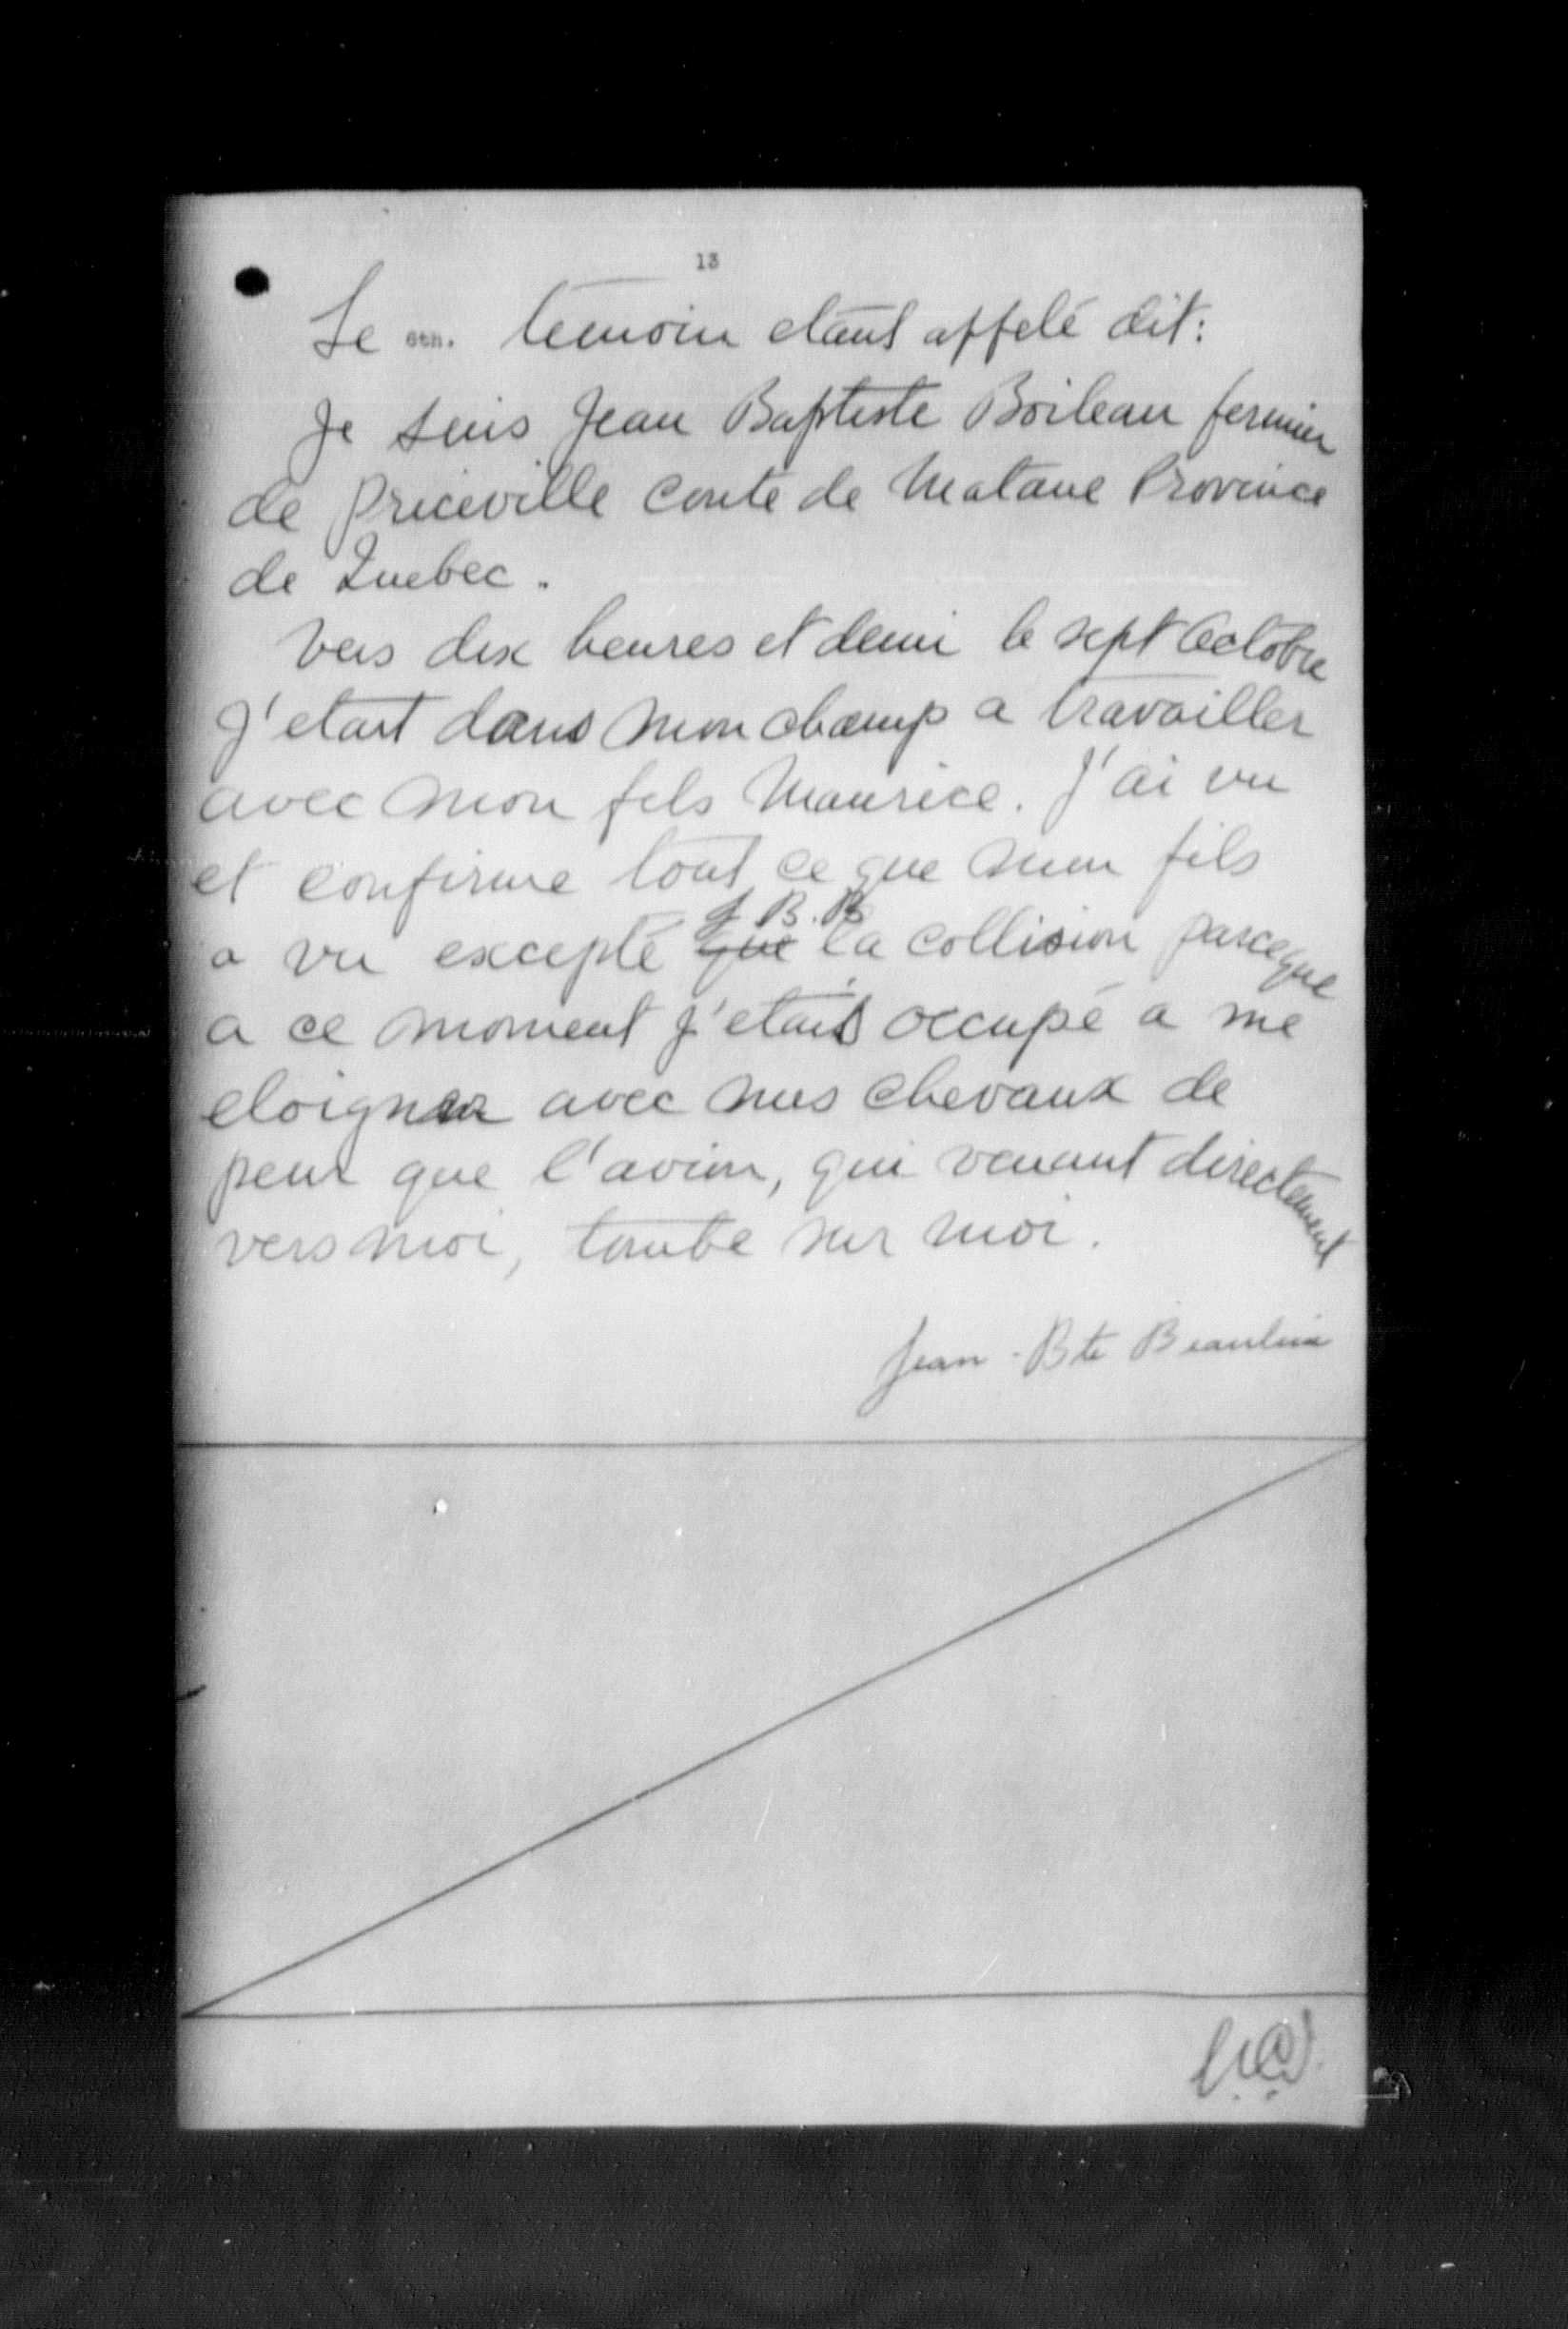 13
Le 6th. temoin etant appelé dit:
Je suis Jean Baptiste Boileau fermier
de Priceville conte de Matane Province
de Quebec.
Vers dix heures et demi le sept Octobre
j'etait dans mon champ a travailler
avec mon fils Maurice. J'ai vu
et confirme tout ce que mon fils
J B. B
a vu excepté que la collision parceque
a ce moment j'etais occupé a me
eloigner avec mes chevaux de
peur que l'avion, qui venant directement
vers moi, tombe sur moi.
Jean - Bte Beaulieu